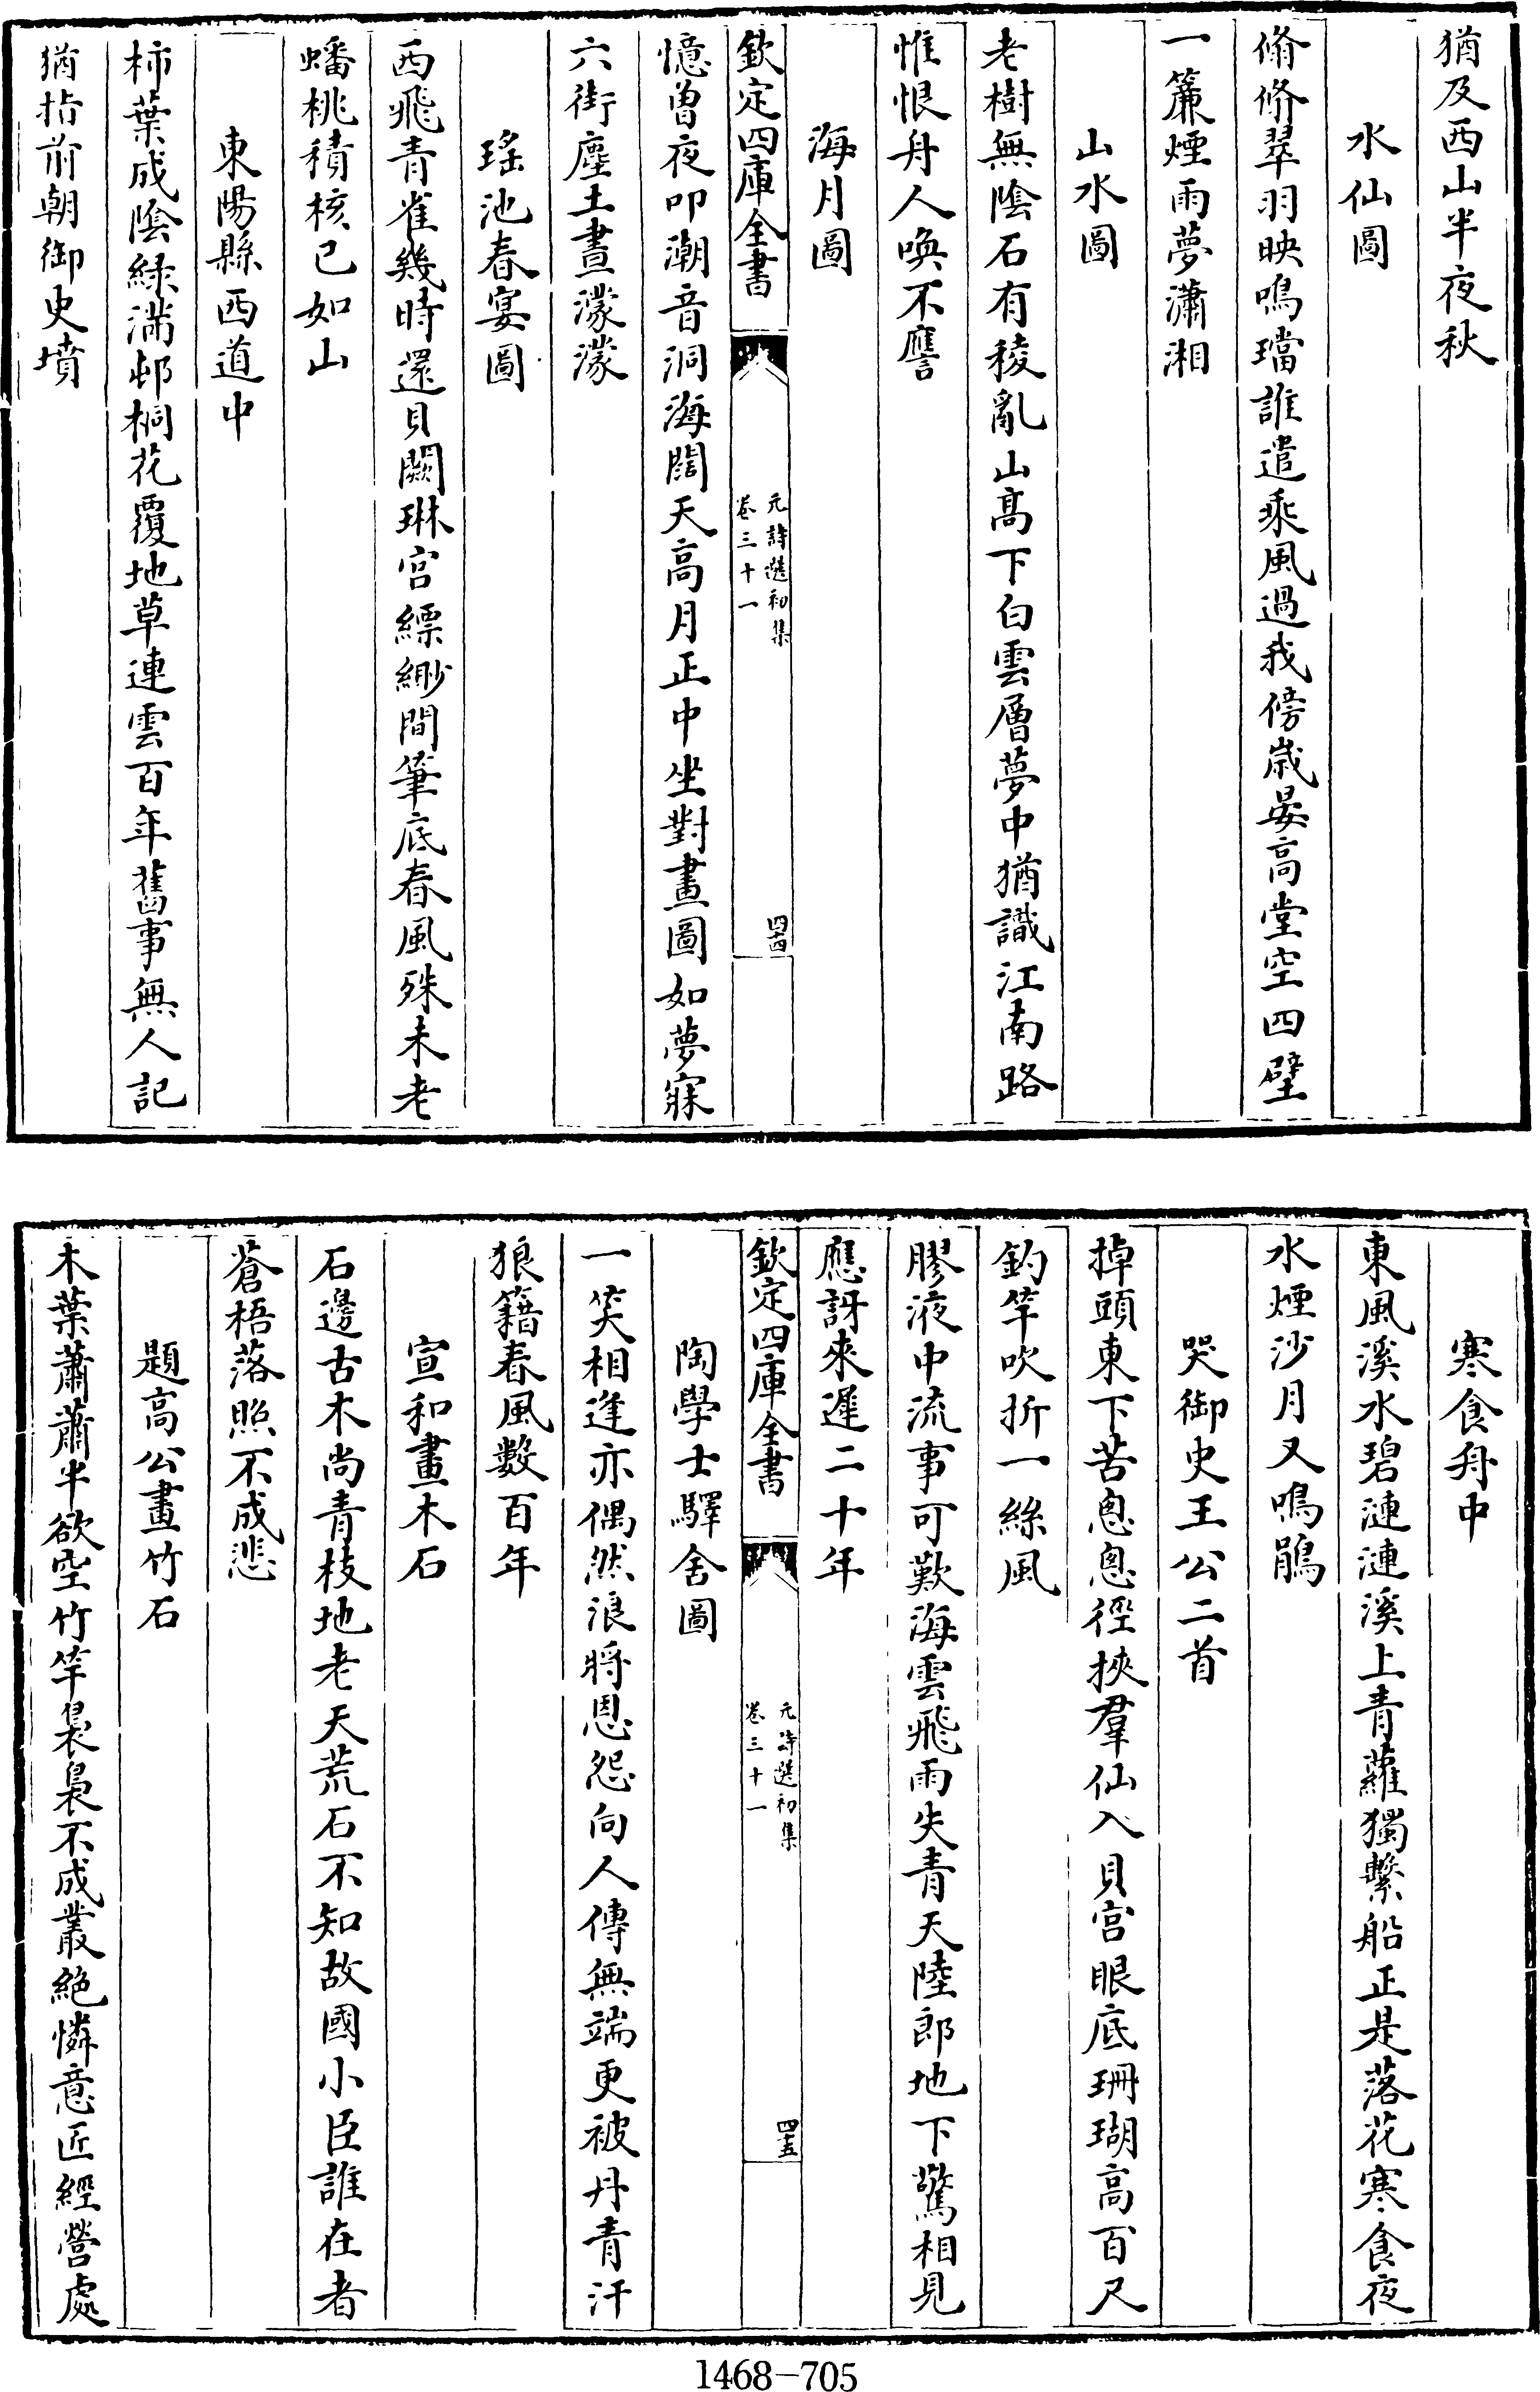 猶及西山半夜秋
水仙圖
翛翛翠羽映鳴璫誰遣乘風過我傍歲晏高堂空四壁
一簾煙雨夢瀟湘
山水圖
老樹無陰石有稜亂山高下白雲層夢中猶識江南路
惟恨舟人喚不譍
海月圖
欽定四庫全書
元詩選初集
卷三十一
四十四
憶曾夜叩潮音洞海闊天高月正中坐對畫圖如夢寐
六街塵土晝濛濛
瑤池春宴圖
西飛青雀幾時還貝闕琳宮縹緲間筆底春風殊未老
蟠桃積核已如山
東陽縣西道中
柿葉成陰緑滿邨桐花覆地草連雲百年舊事無人記
猶指前朝御史墳
寒食舟中
東風溪水碧漣漣溪上青蘿獨繫船正是落花寒食夜
水煙沙月又鳴鵑
哭御史王公二首
掉頭東下苦悤悤徑挾羣仙入貝宮眼底珊瑚高百尺
釣竿吹折一絲風
膠液中流事可歎海雲飛雨失青天陸郎地下驚相見
應訝來遲二十年
欽定四庫全書
元詩選初集
卷三十一
四十五
陶學士驛舍圖
一笑相逢亦偶然浪將恩怨向人傳無端更被丹青汗
狼籍春風數百年
宣和畫木石
石邊古木尚青枝地老天荒石不知故國小臣誰在者
蒼梧落照不成悲
題高公畫竹石
木葉蕭蕭半欲空竹竿裊裊不成叢絶憐意匠經營處
1468-705